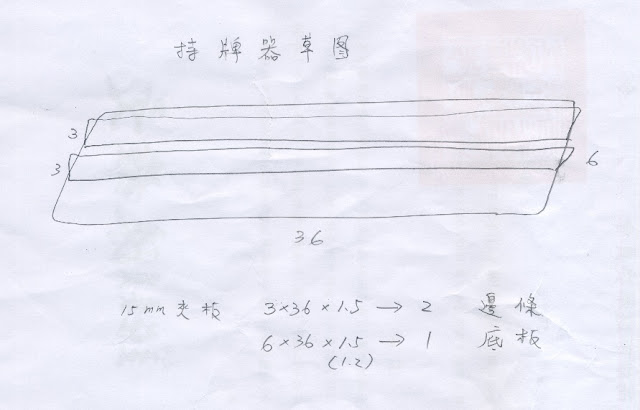 持牌器草图
3
3
6
36
15mm夹板 3×36×1.5→2 邊條
6×36×1.5→1 底板
(1.2)